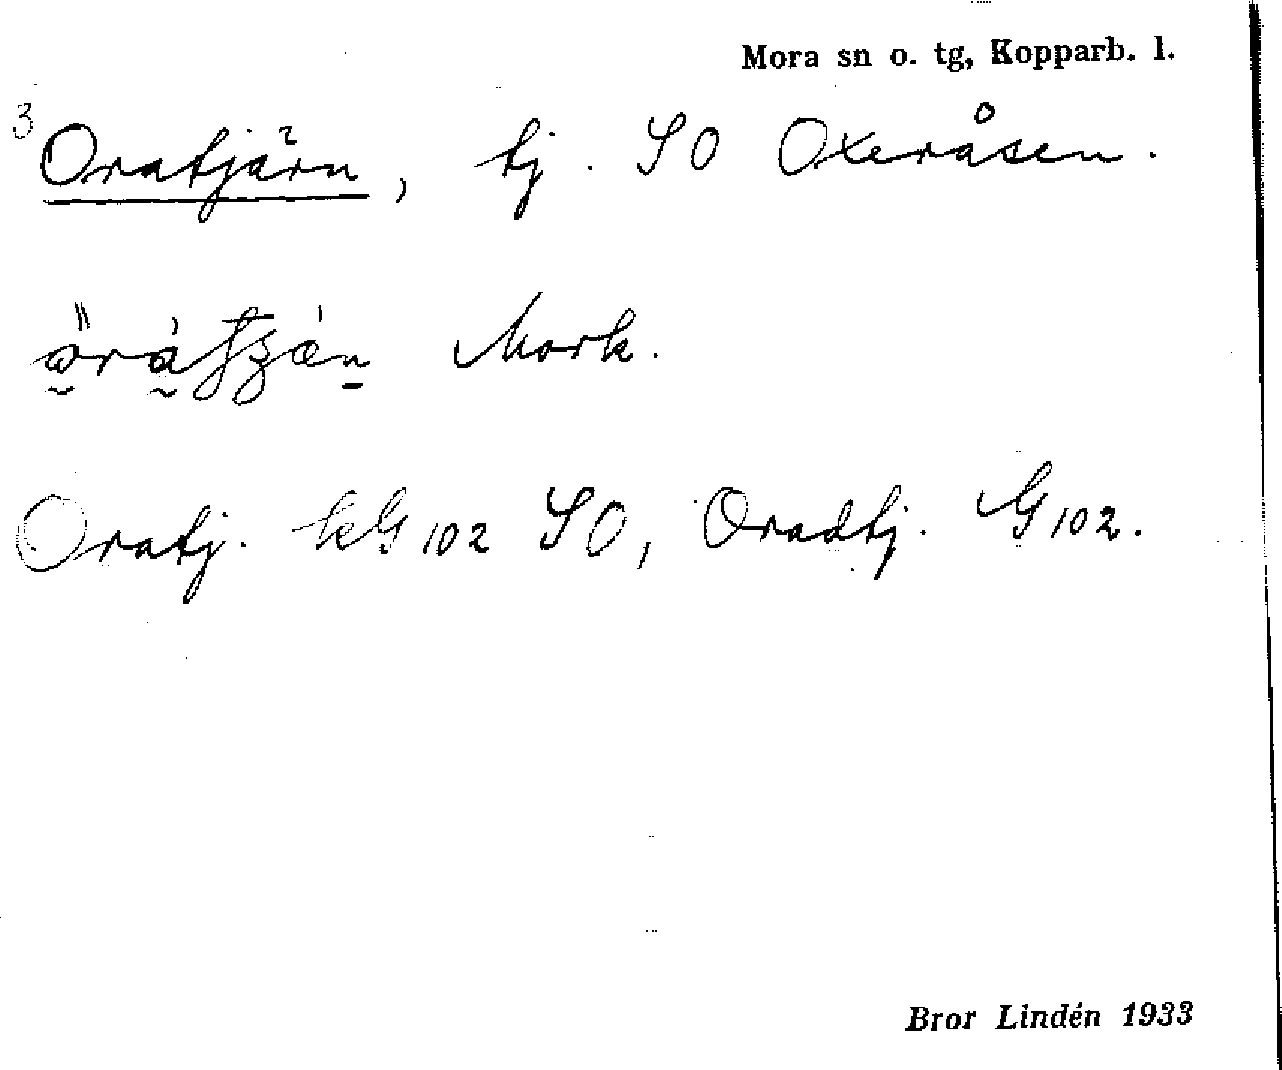 Mora sn o. tg, Kopparb. l.
3 Oratjärn, tj. SO Oxeråsen.
Mork.
Oratj. kG 102 SO, Oradtj. G 102.
Bror Lindén 1933